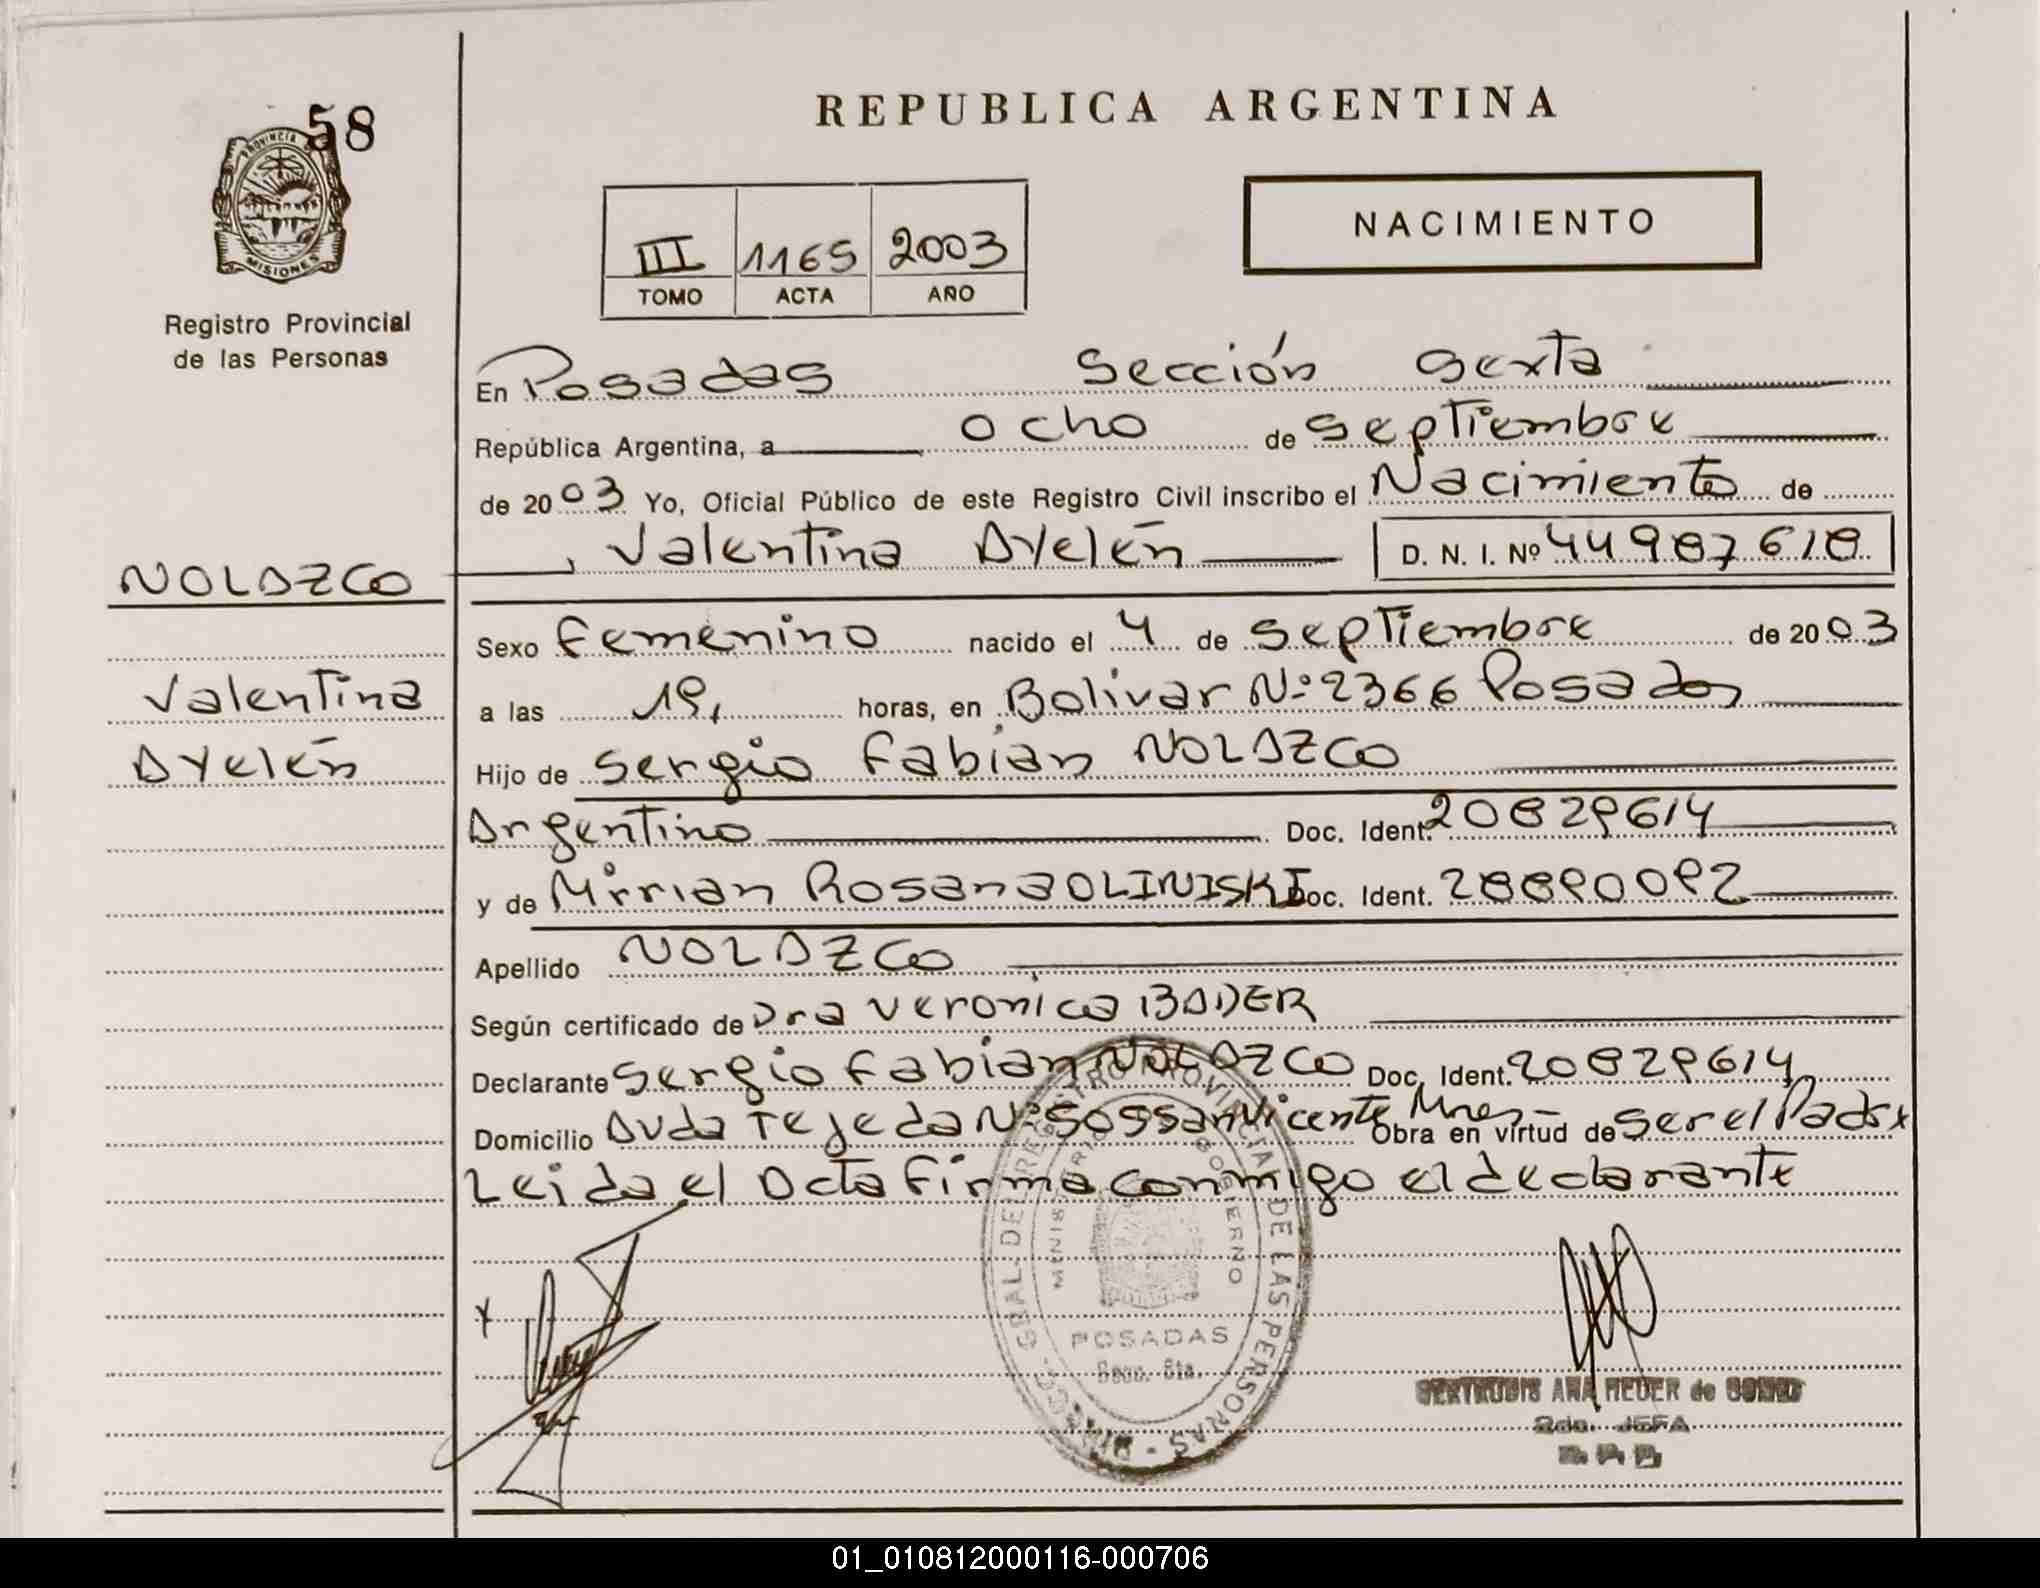 58
PROVINCIA
MISIONES
Registro Provincial
de las Personas
REPUBLICA ARGENTINA
NACIMIENTO
III 1165 2003
TOMO ACTA AÑO
En Posadas Sección Sexta
República Argentina, a ocho de Septiembre
de 2003 Yo, Oficial Público de este Registro Civil inscribo el Nacimiento de
Valentina Ayelén D. N. I. Nº 44987618
NOLAZCO
Valentina
Ayelén
Sexo femenino nacido el 4 de Septiembre de 2003
a las 19, horas, en Bolivar Nº 2366 Posadas
Hijo de Sergio Fabian NOLAZCO
Argentino Doc. Ident. 20829614
y de Mirrian Rosana OLINISKI Doc. Ident. 28890092
Apellido NOLAZCO
Según certificado de Dra Veronica BADER
Declarante Sergio Fabian NOLAZCO Doc. Ident. 20829614
Domicilio Avda Tejeda Nº San Vicente Mnes Obra en virtud de Ser el Padre
Leida el Acta firma conmigo el declarante
GRAL. DEL REGISTRO PROVINCIAL DE LAS PERSONAS
MINISTERIO GOBIERNO
POSADAS
Secc. 6ta.
GERTRUDIS ANA REUER de
2da. JEFA
01_010812000116-000706